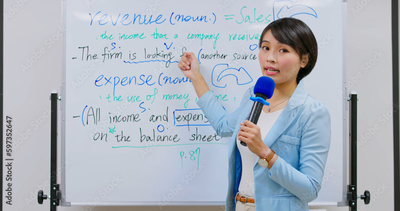 revenue (noun.) = Sales
the income that a company receive
S. V. O
- The firm is looking for (another source
expense (noun
: the use of money me
S.
- (All income and expens
O
on the balance sheet
p.87
Adobe Stock
#597352647